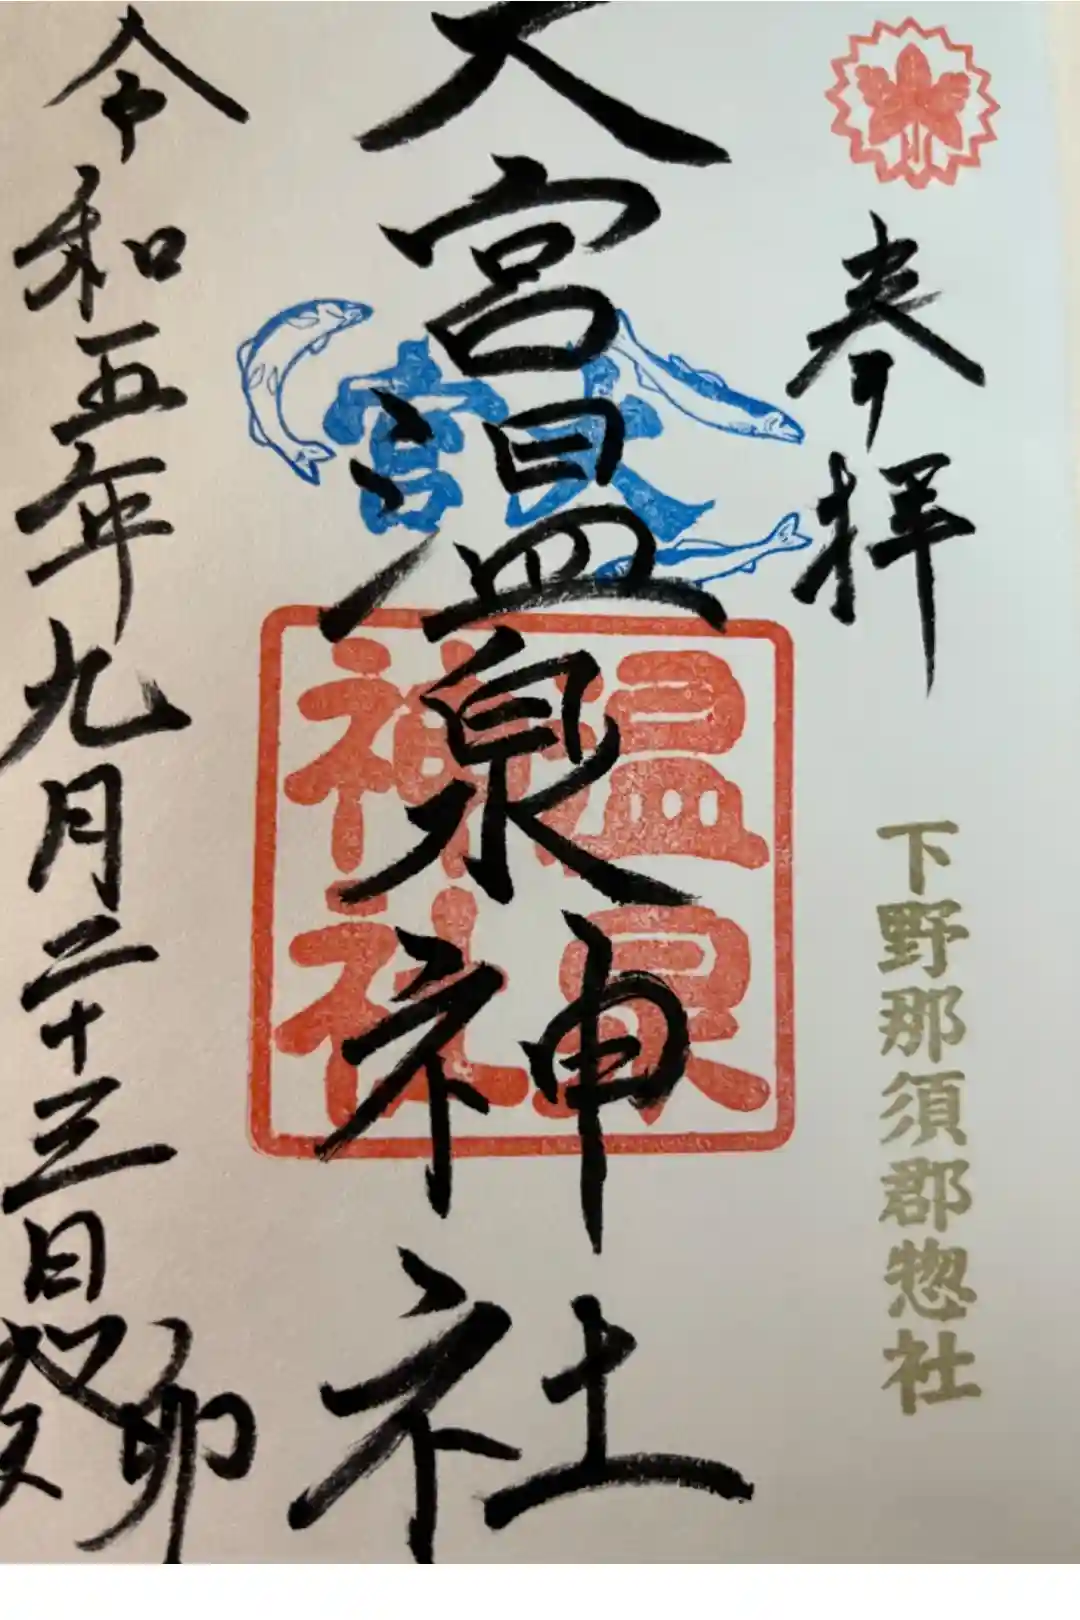 奉拝
下野那須郡惣社
大宮温泉神社
大宮
温泉
神社
令和五年九月二十三日癸卯